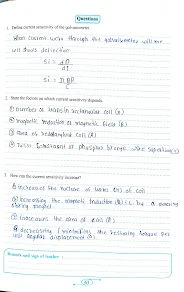 Questions
1. Define current sensitivity of the galvanometer.
When current sent through the galvanometer will
coil shows deflection
Si = dθ
dI
Si = nBA
C
2. State the factors on which current sensitivity depends.
① number of turns in rectangular coil (n)
② magnetic induction of magnetic field (B)
③ area of rectangular coil (A)
④ Twist constant of phosphor bronze wire suspension (C)
3. How can the current sensitivity increase?
① increasing the number of turns (n) of coil
② increasing the magnetic induction (B) i.e. by a
strong magnet
③ increasing the area of coil (A)
④ decreasing / minimizing the restoring torque per
unit angular displacement (C).
Remark and sign of teacher :